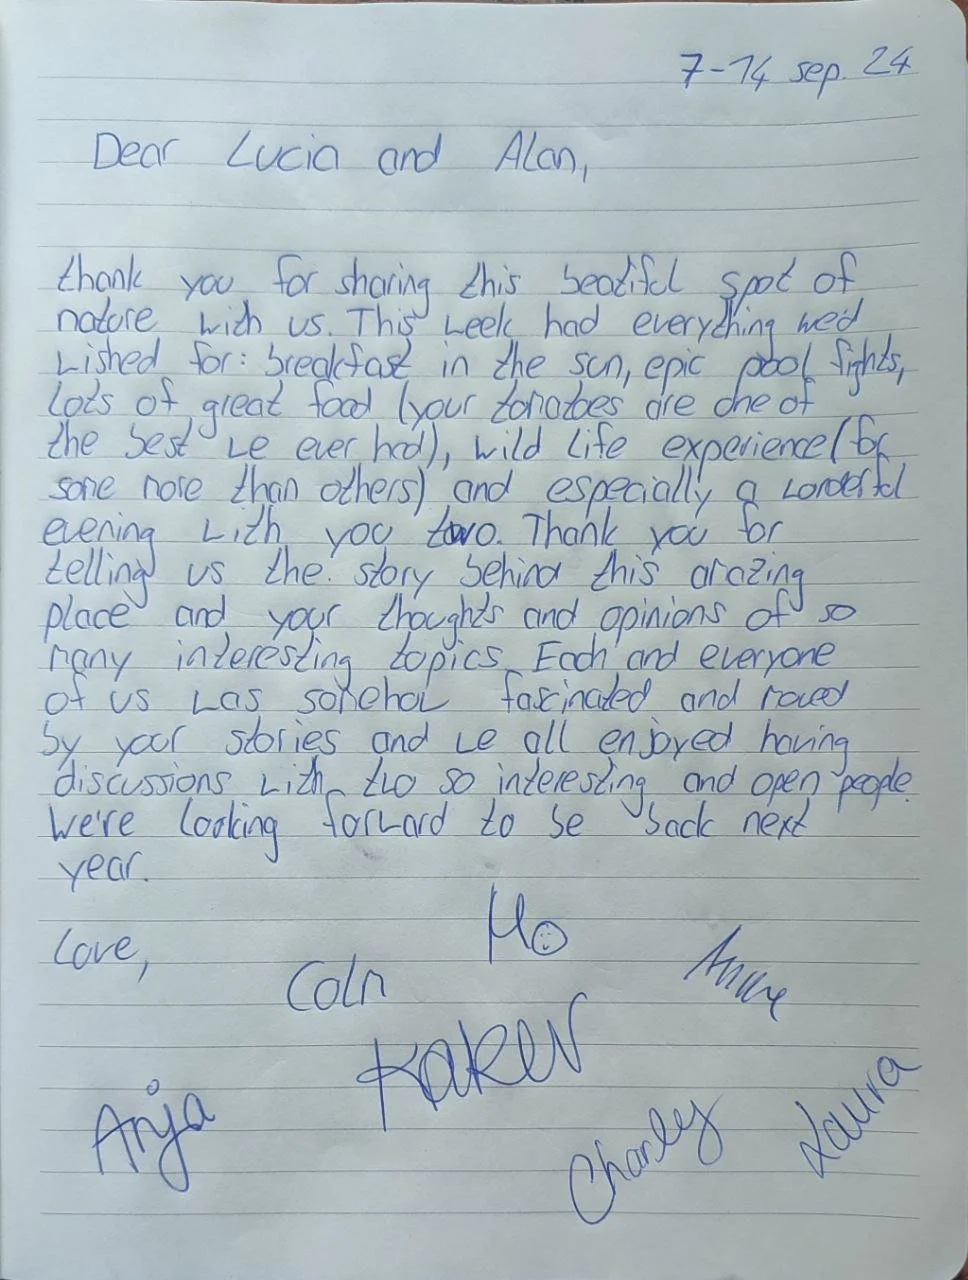 7-14 sep. 24
Dear Lucia and Alan,
thank you for sharing this beatiful spot of
nature with us. This week had everything we'd
wished for: breakfast in the sun, epic pool fights,
Lots of great food (your tomatoes are one of
the best we ever had), wild life experience (for
some more than others) and especially a wonderful
evening with you two. Thank you for
telling us the story behind this amazing
place and your thoughts and opinions of so
many interesting topics. Each and everyone
of us was somehow fascinated and moved
by your stories and we all enjoyed having
discussions with two so interesting and open people.
We're looking forward to be back next
year.
Love,
Mo
Anja
Charly
Laura